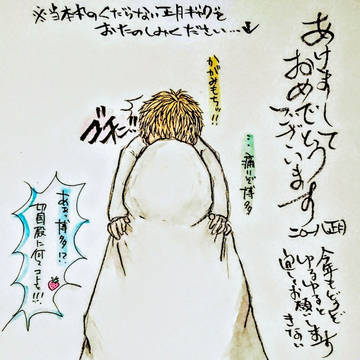 ※当本丸のくだらない正月ギャグを
おたのしみください…↓
あけまして
おめでとう
ございます
二〇一八正月
今年もどうぞ
ゆるゆると
宜しくお願いします
かがみもちッ!!
ゴチーン
…痛いぞ博多
ああッ博多!?
切国殿に何てコトを!!!